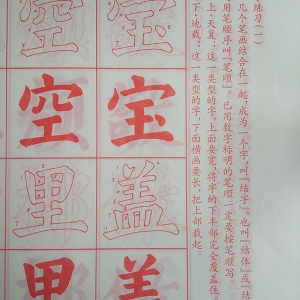 练习(一)
几个笔画结合在一起,成为一个字,叫『结字』,也叫『结体』或『结
用笔顺序叫『笔顺』。已用数字标明的笔顺一定要按笔顺写。
上·天复:这一类型的字,上面要宽,将字的下半部完全覆盖住
下·地载:这一类型的字,下面横画要长,把上部载起。
宝宝盖盖
空空里里